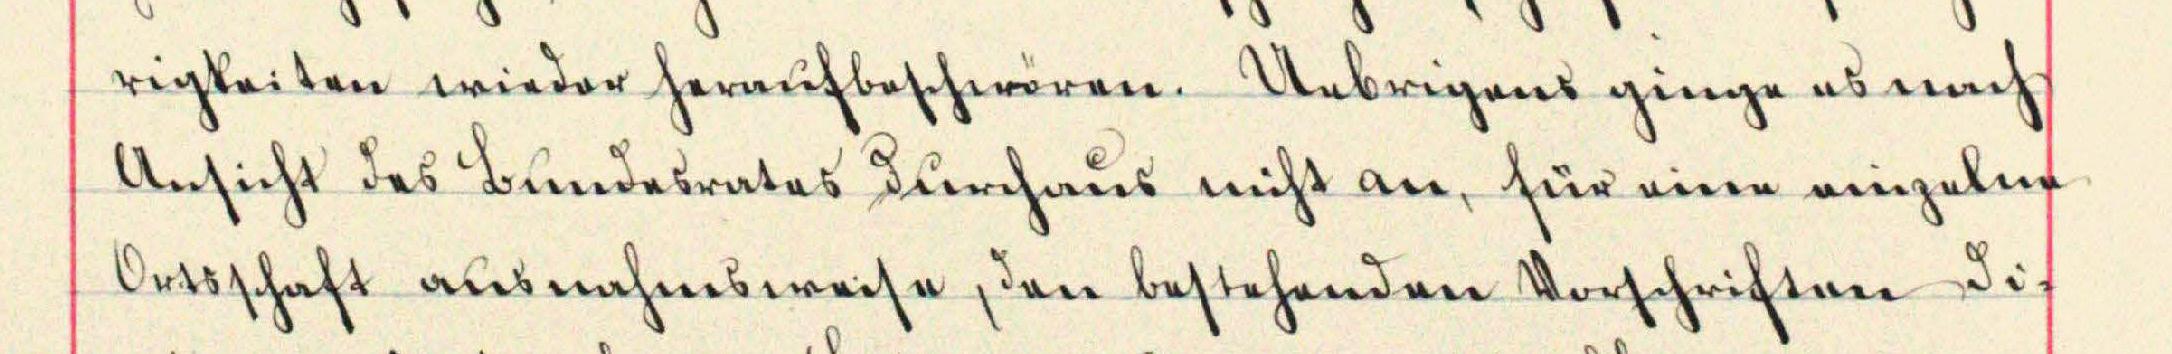 rigkeiten wieder heraufbeschwören. Uebrigens ginge es nach
Ansicht des Bundesrates durchaus nicht an, für eine einzelne
Ortsschaft ausnahmsweise, den bestehenden Vorschriften di-